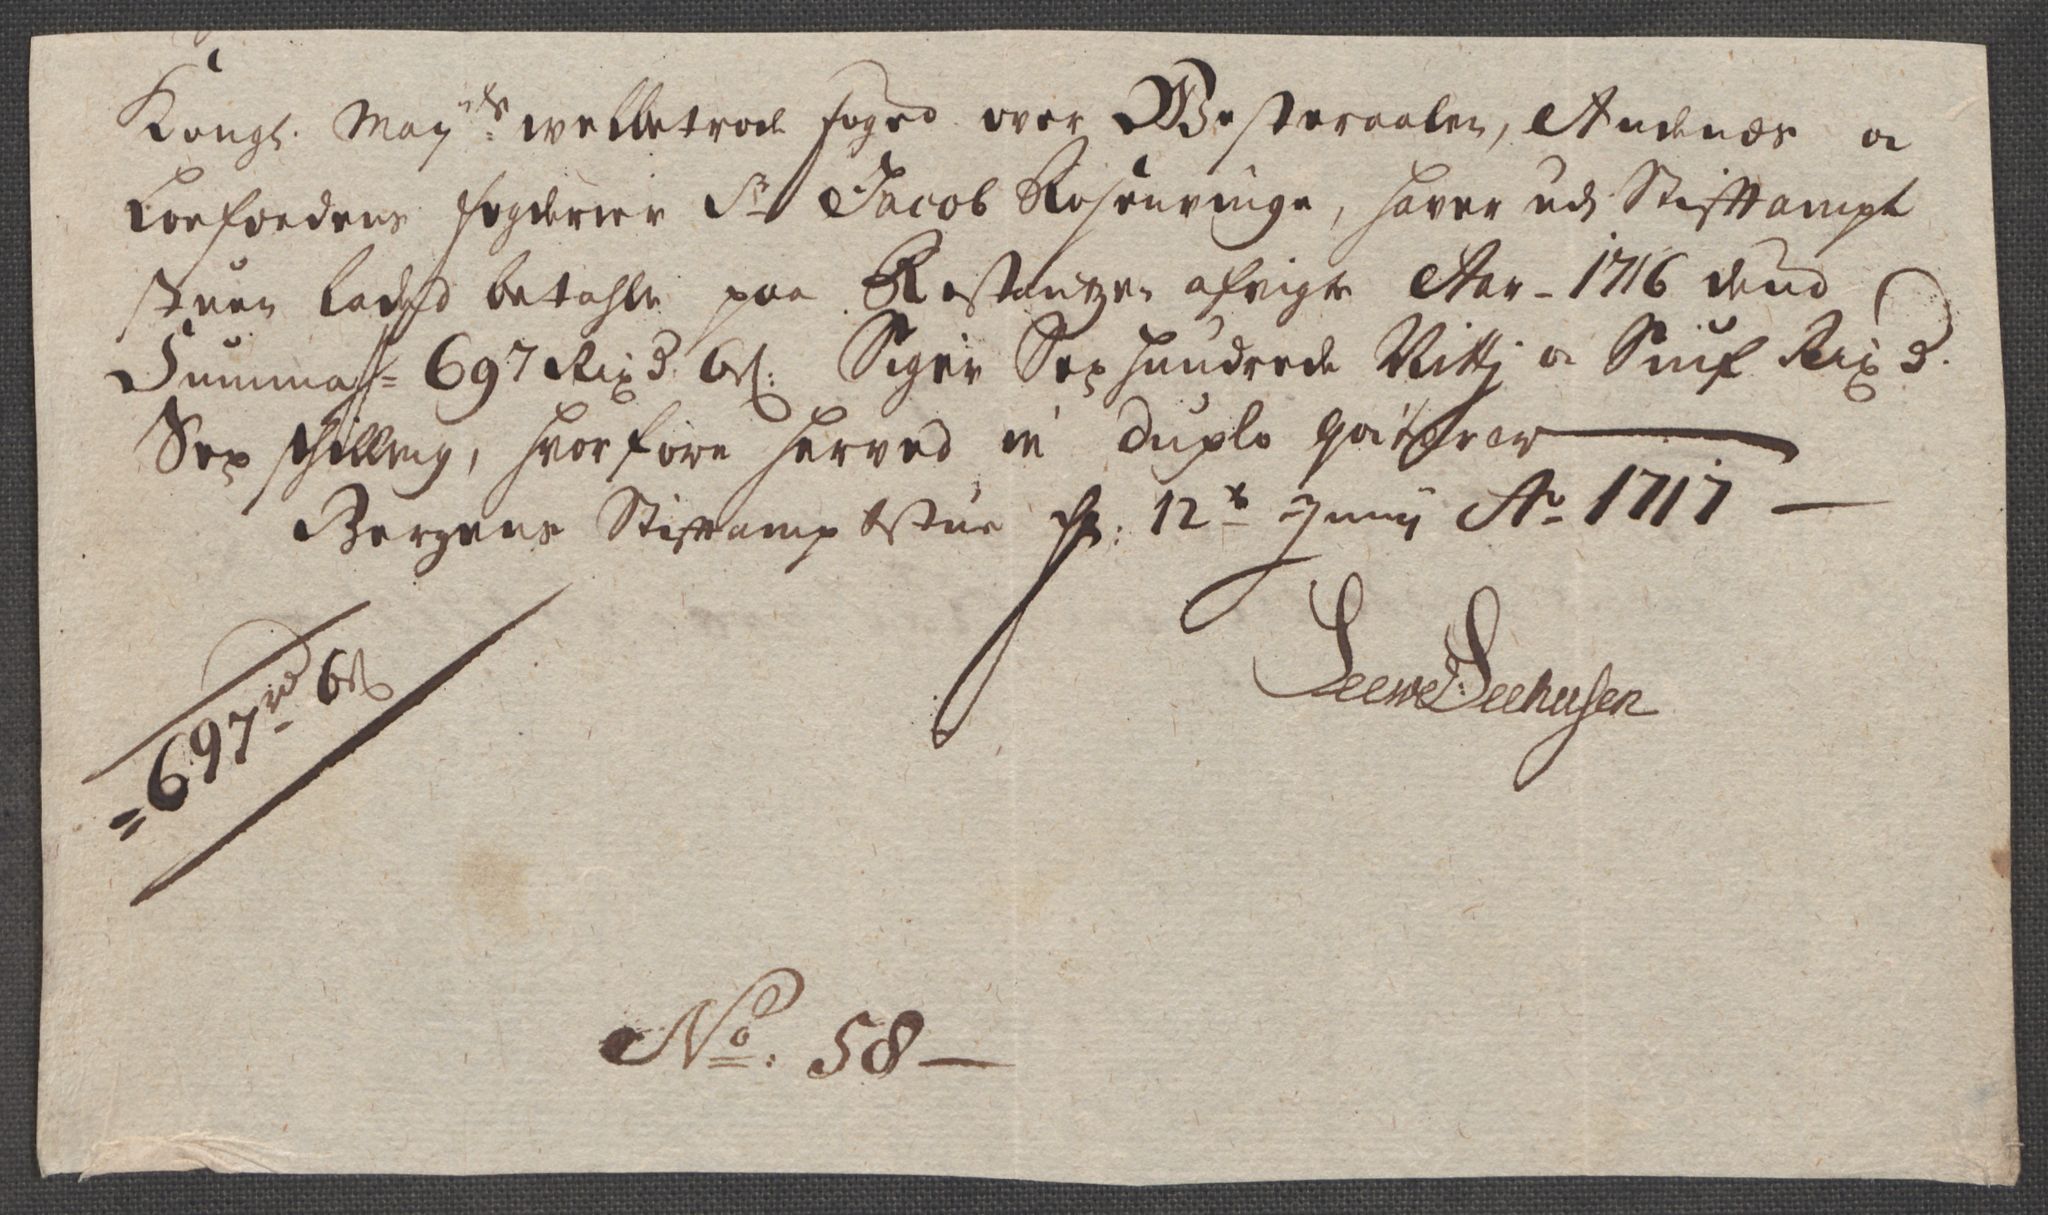 Kongl. May.ts welbetrode foged over Westeraalen, Andenæs oc
Loefoedens fogderier Sr Jacob Rosenvinge, haver udj Stifftampt
stuen laded betahle paa Restantzen afvigte Aar - 1716 dend
Summa = 697 Rixd. 6 s: Siger Sexhundrede Nittj oc Siuf Rixd.
Sex skilling, hvorfore herved in duplo qvitterer
Bergens Stifftamptstue d: 12te Junij Ao 1717 -
Seehusen
= 697 rd 6 s
No. 58 -